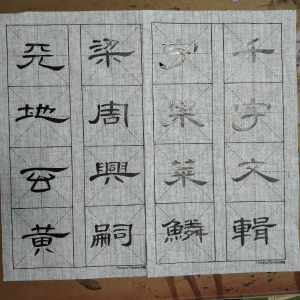 千字文輯
字果菜鱗
梁周興嗣
天地玄黃